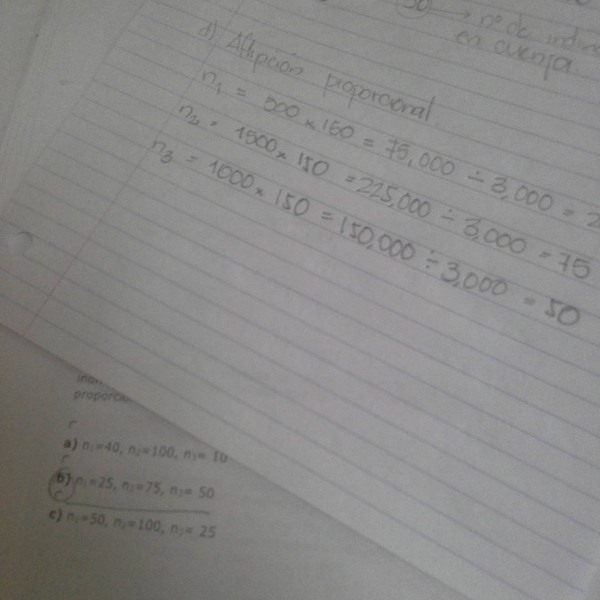 → nº de
en cuenta.
d) Afijación proporcional
n₁ = 500 × 150 = 75,000 ÷ 3,000 = 2
n₂ = 1500 × 150 = 225,000 ÷ 3,000 = 75
n₃ = 1000 × 150 = 150,000 ÷ 3,000 = 50
a) n₁=40, n₂=100, n₃= 10
b) n₁=25, n₂=75, n₃= 50
c) n₁=50, n₂=100, n₃= 25